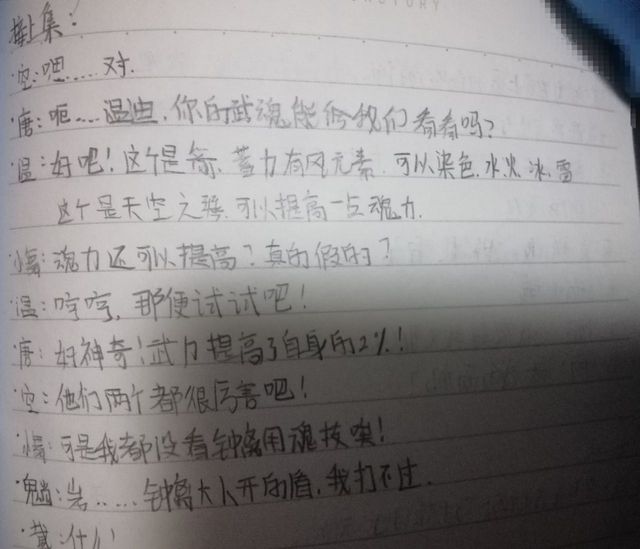 接上集:
空:吧……对.
唐:呃……温迪.你的武魂能给我们看看吗?
温:好吧!这个是箭.蓄力有风元素.可以染色.水火冰雷
这个是天空之琴.可以提高一点魂力.
小舞:魂力还可以提高?真的假的?
温:哼哼,那便试试吧!
唐:好神奇!武力提高了自身的2%!
空:他们两个都很厉害吧!
小舞:可是我都没看钟离用魂技唉!
魈:岩……钟离大人开的盾,我打不过.
戴:什么